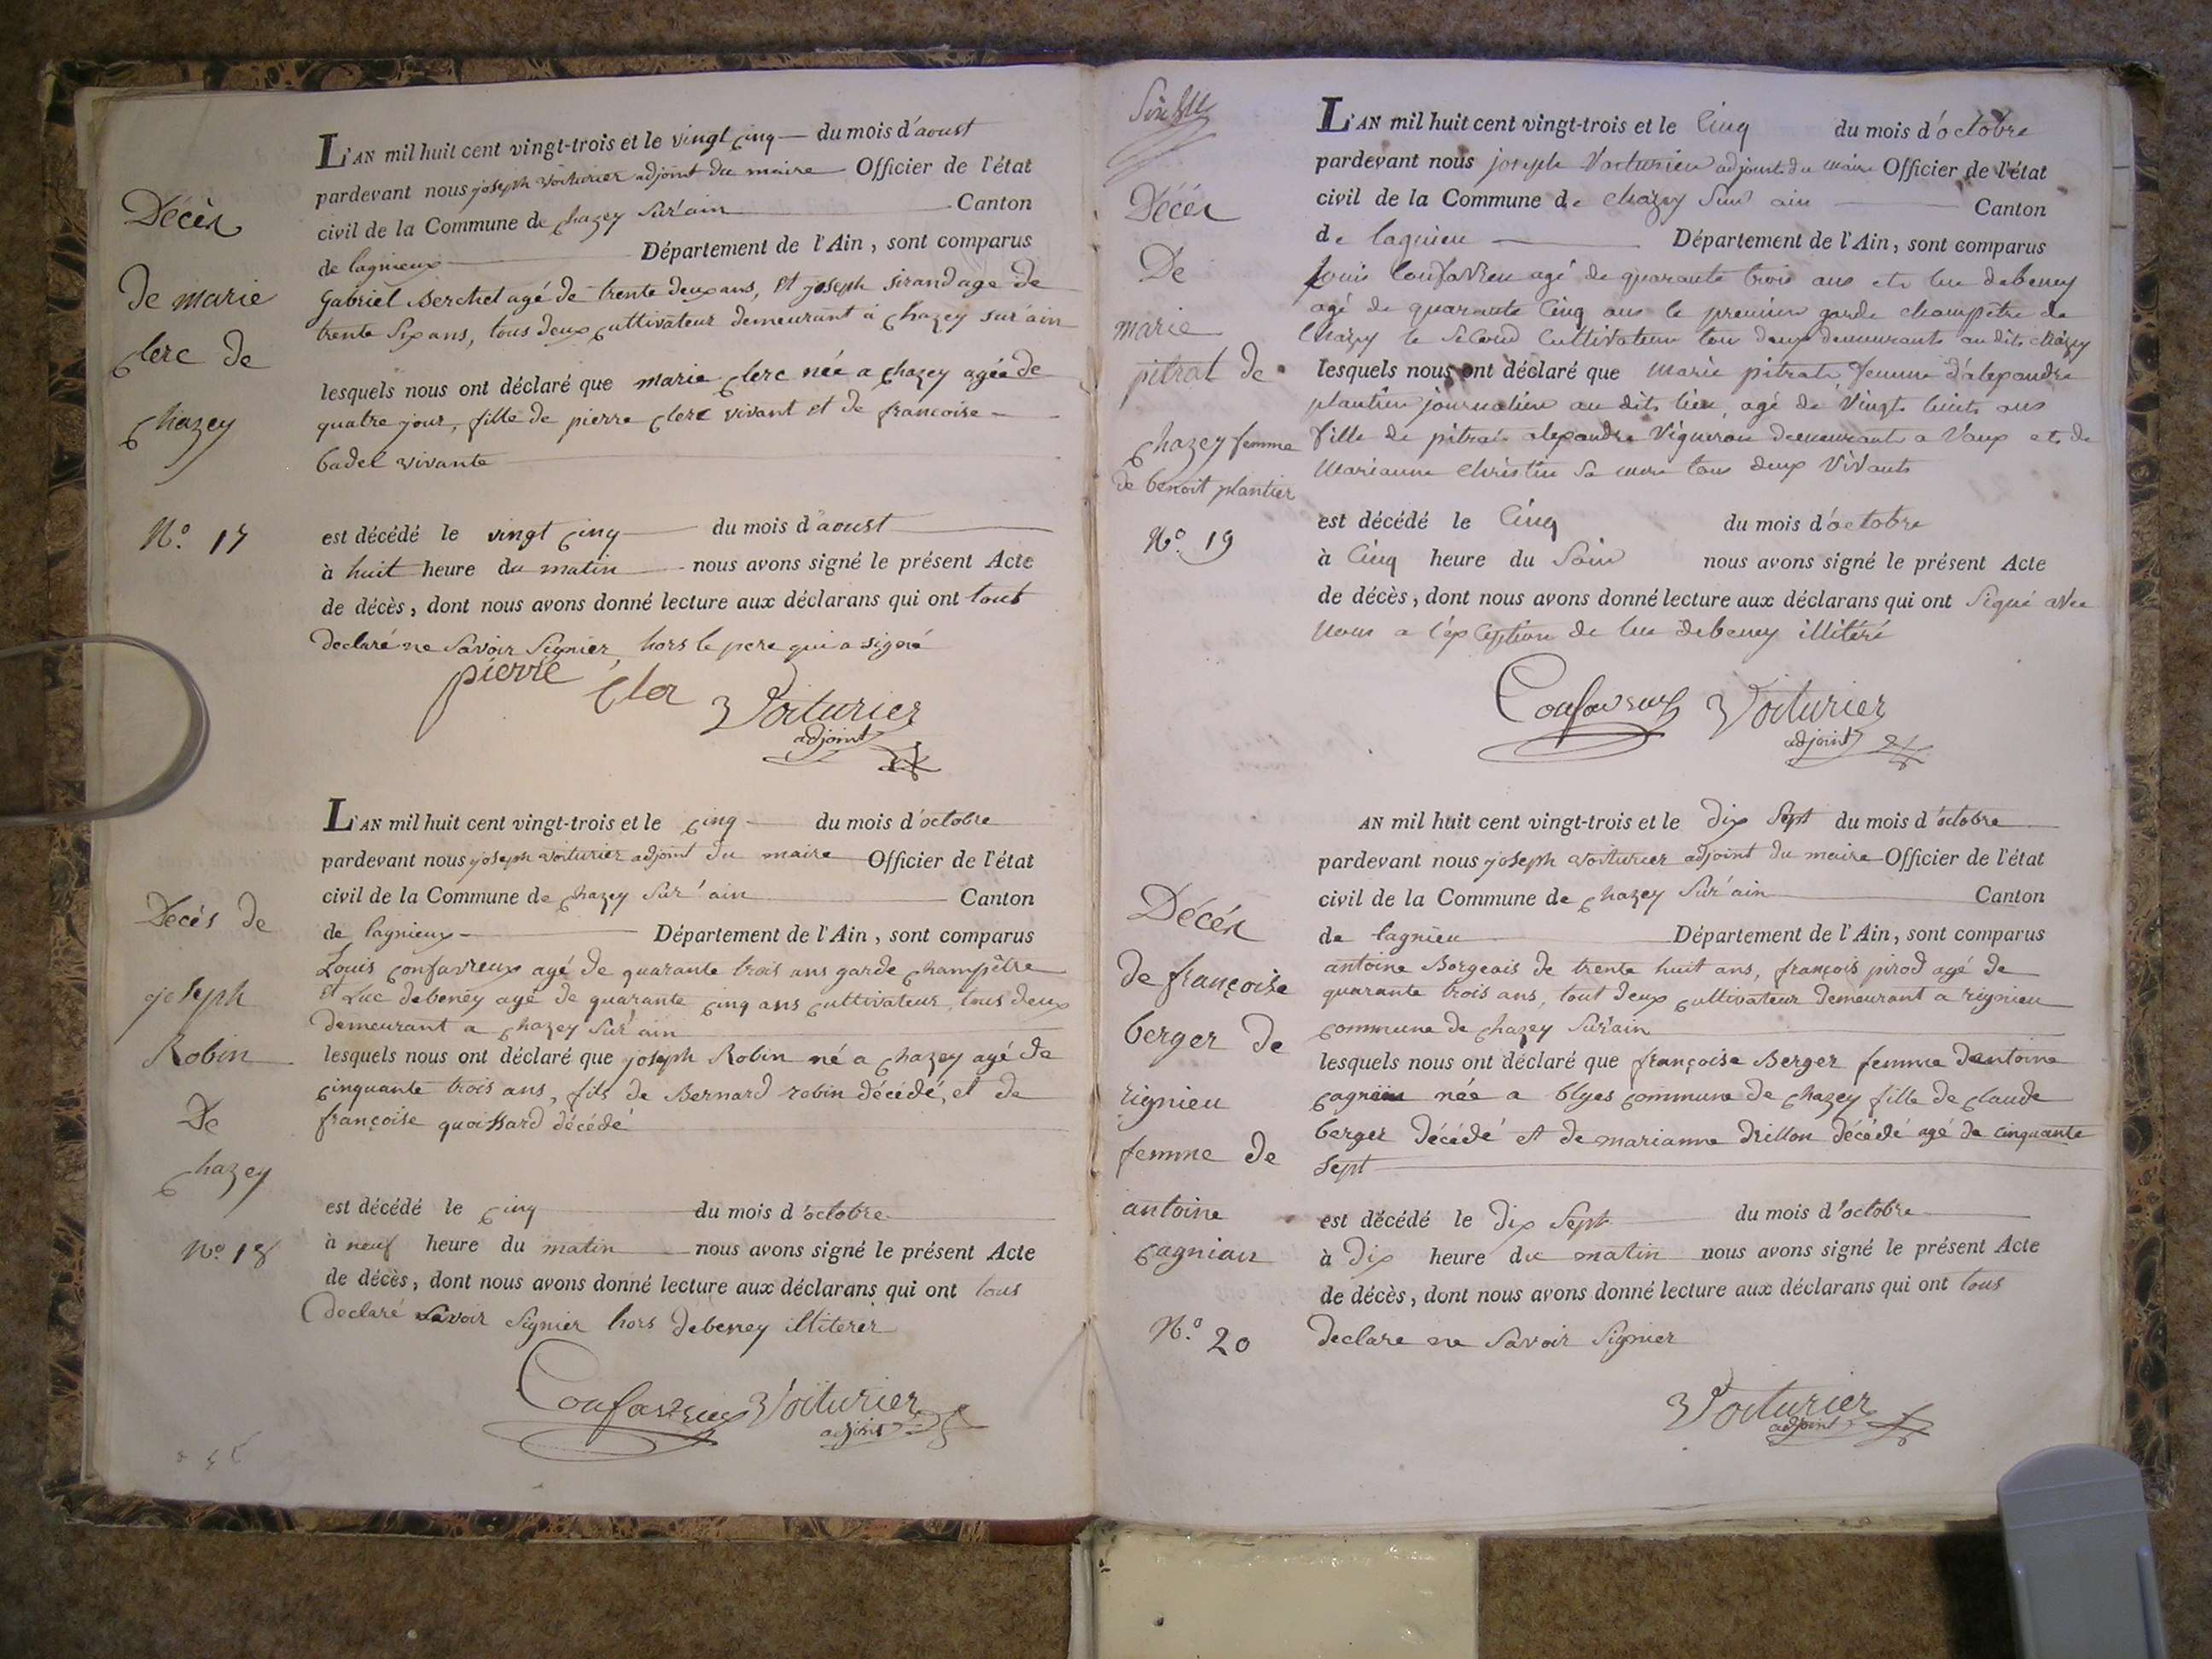 Décès
de marie
clerc de
chazey
N.º 17
L'AN mil huit cent vingt-trois et le vingt cinq du mois d'aoust
pardevant nous joseph voiturier adjoint du maire Officier de l'état
civil de la Commune de chazey sur'ain Canton
de lagnieux Département de l'Ain, sont comparus
Gabriel Berchet agé de trente deux ans, et joseph sirand age de
trente six ans, tous deux cultivateur demeurant a chazey sur'ain
lesquels nous ont déclaré que marie clerc née a chazey agée de
quatre jour, fille de pierre clerc vivant et de francoise
badel vivante
est décédé le vingt cinq du mois d'aoust
à huit heure du matin nous avons signé le présent Acte
de décès, dont nous avons donné lecture aux déclarans qui ont tous
declaré ne savoir signier, hors le pere qui a signé
pierre cler Voiturier
adjoint
Decés de
joseph
Robin
De
chazey
Nº 18
L'AN mil huit cent vingt-trois et le cinq du mois d'octobre
pardevant nous joseph voiturier adjoint du maire Officier de l'état
civil de la Commune de chazey sur'ain Canton
de lagnieux Département de l'Ain, sont comparus
Louis confavreux agé de quarante trois ans garde champêtre
et Luc debeney agé de quarante cinq ans cultivateur, tous deux
demeurant a chazey sur'ain
lesquels nous ont déclaré que joseph Robin né a chazey agé de
cinquante trois ans, fils de Bernard robin décédé, et de
françoise quoissard décédé
est décédé le cinq du mois d'octobre
à neuf heure du matin nous avons signé le présent Acte
de décès, dont nous avons donné lecture aux déclarans qui ont tous
declaré savoir signier hors debeney illiterer
Confavreux Voiturier
adjoint
Décés
De
marie
pitrat de
chazey femme
de benoit plantier
Nº 19
L'AN mil huit cent vingt-trois et le Cinq du mois d'octobre
pardevant nous joseph Voiturier adjoint du maire Officier de l'état
civil de la Commune de chazey sur ain Canton
de lagnieu Département de l'Ain, sont comparus
Louis Confavreu agé de quarante trois ans et luc debeney
agé de quarante Cinq ans le premier garde champêtre de
Chazey le second Cultivateur tou deux demeurants au dits chazey
lesquels nous ont déclaré que Marie pitrat femme d'alexandre
plantier journalier au dits lieu, agé de Vingt huits ans
fille de pitrat alexandre Vigneron demeurants a Vaux et de
Marianne Christin sa mere tous deux Vivants
est décédé le Cinq du mois d'octobre
à Cinq heure du Soir nous avons signé le présent Acte
de décès, dont nous avons donné lecture aux déclarans qui ont signé avec
nous a l'exception de luc debeney illitéré
Confavreux Voiturier
adjoint
Décés
de françoise
berger de
rignieu
femme de
antoine
N.º 20
AN mil huit cent vingt-trois et le dix sept du mois d'octobre
pardevant nous joseph voiturier adjoint du maire Officier de l'état
civil de la Commune de chazey sur'ain Canton
de lagnieu Département de l'Ain, sont comparus
antoine Borgeais de trente huit ans, françois pirod agé de
quarante trois ans, tout deux cultivateur demeurant a rignieu
commune de chazey sur'ain
lesquels nous ont déclaré que françoise Berger femme dantoine
née a blyes commune de chazey fille de claude
berger décédé et de marianne drillon décédé agé de cinquante
sept
est décédé le dix sept du mois d'octobre
à dix heure du matin nous avons signé le présent Acte
de décès, dont nous avons donné lecture aux déclarans qui ont tous
declare ne savoir signier
Voiturier
adjoint